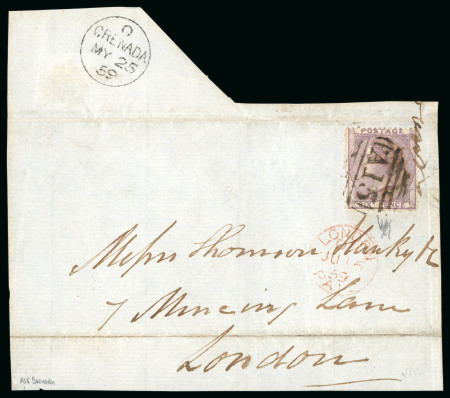 O
GRENADA
MY 25
59
POSTAGE
A15
SIX PENCE
LONDON
PAID
Messrs Thomson Hankey & Co
7 Mincing Lane
London